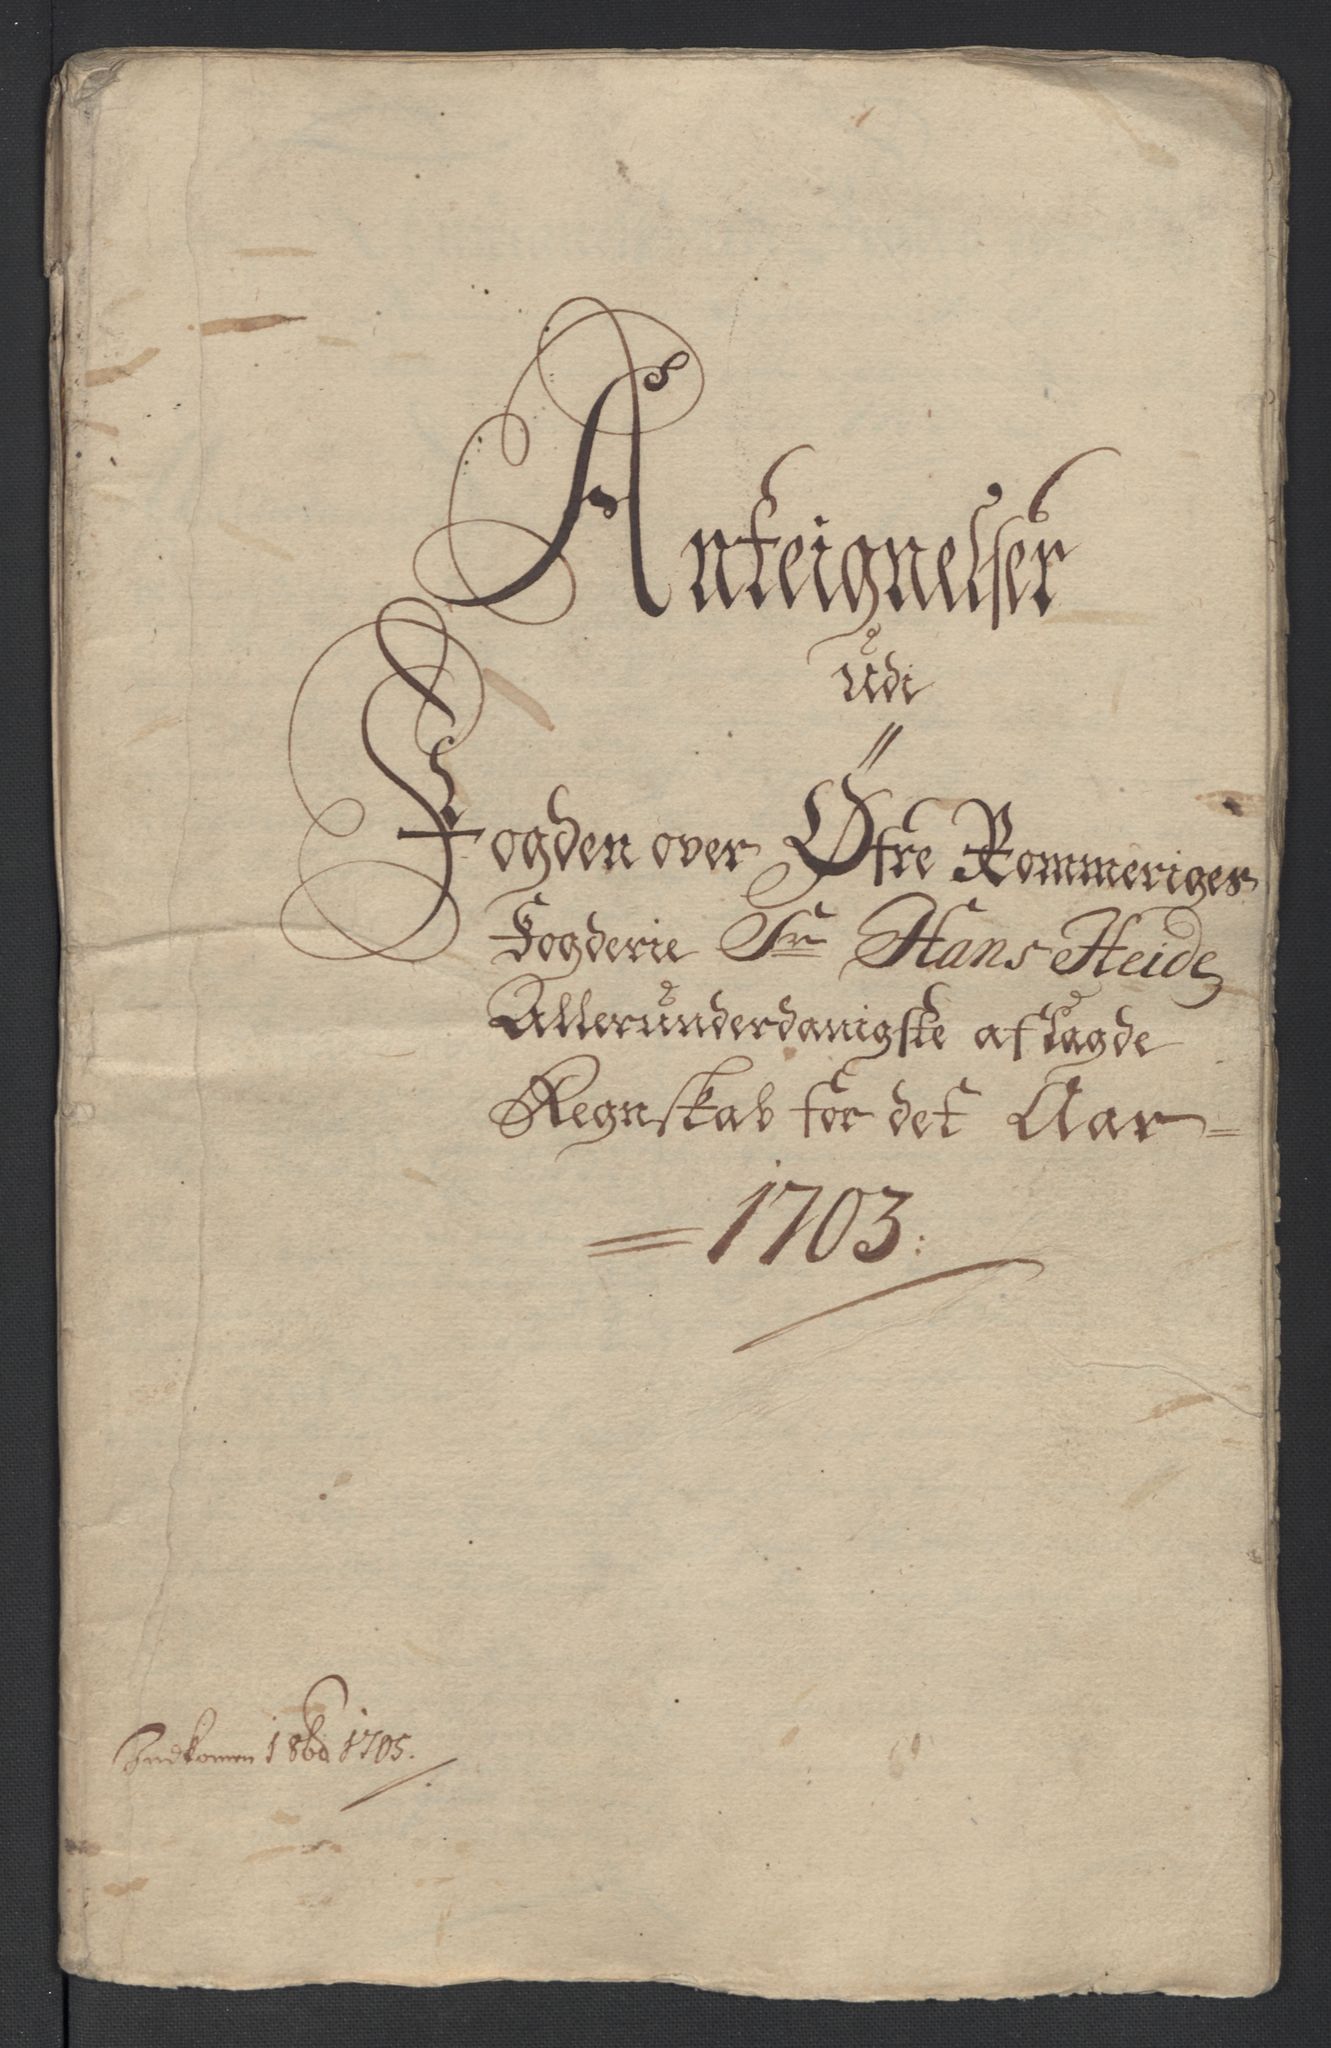 Anteignelser
udi
Fogden over Øfre Rommeriges
Fogderie Sr Hans Heide
Allerunderdanigste aflagde
Regnskab for det Aar=
= 1703:
Indkomen 1705.